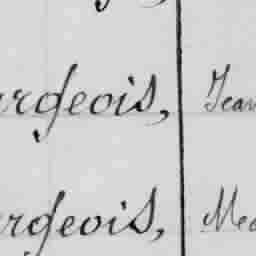 rgeois, Jean
rgeois, Me